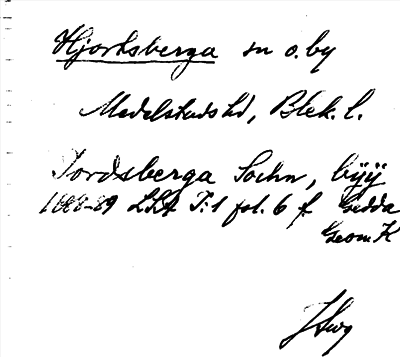 Hjortsberga sn o. by
Medelstads hd, Blek. l.
Jordsberga Sochn, bÿÿ
1688-89 LSA T:1 fol. 6 f Gedda
Geom. K